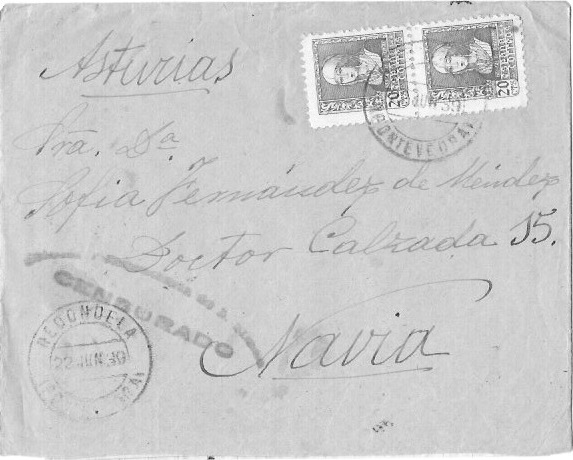 Asturias
Sra. Dª
Sofia Fernández de Méndez
Doctor Calzada 15.
Navia
20
20
JUN 39
PONTEVEDRA
CENSURADO
REDONDELA
22 JUN 39